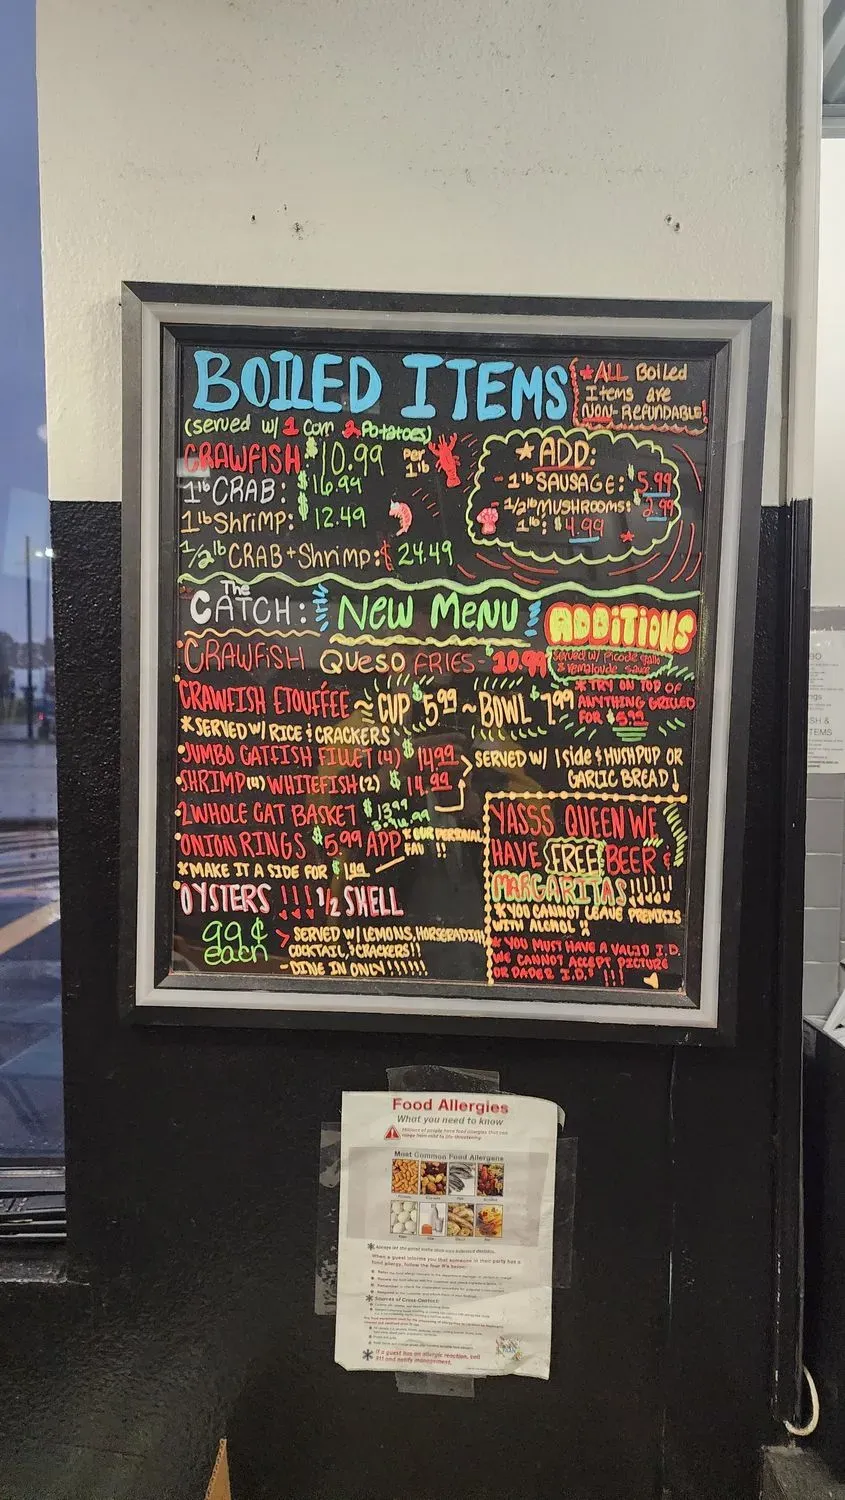 BOILED ITEMS
*ALL Boiled
Items are
NON-REFUNDABLE!
(served w/ 1 Corn 2 Potatoes)
CRAWFISH: $10.99 Per 1lb
1lb CRAB: $16.99
1lb Shrimp: $12.49
1/2lb CRAB + Shrimp: $24.49
★ADD:
- 1lb SAUSAGE: $5.99
1/2lb MUSHROOMS: $2.99
1lb: $4.99
The CATCH: NEW MENU
ADDITIONS
CRAWFISH QUESO FRIES - $10.99
Served w/ Picode Gallo
& Remaloude Sauce
CRAWFISH ETOUFFÉE ~ CUP $5.99 ~ BOWL $7.99
*SERVED W/ RICE & CRACKERS
*TRY ON TOP OF
ANYTHING GRILLED
FOR $5.99
•JUMBO CATFISH FILLET (4) $14.99
•SHRIMP (4) WHITEFISH (2) $14.99
SERVED W/ 1 side & HUSHPUP OR
GARLIC BREAD!
•2 WHOLE CAT BASKET $13.99
•ONION RINGS $5.99 APP *OUR PERSONAL
FAV !!
*MAKE IT A SIDE FOR $1.49
•OYSTERS !!! 1/2 SHELL
99¢
each
> SERVED W/ LEMONS, HORSERADISH
COCKTAIL, & CRACKERS!!
- DINE IN ONLY!!!!!!
YASSS QUEEN WE
HAVE FREE BEER &
MARGARITAS!!!!!
*YOU CANNOT LEAVE PREMISIS
WITH ALCHOL
* YOU MUST HAVE A VALID I.D.
WE CANNOT ACCEPT PICTURE
OR PAPER I.D.s !!!
Food Allergies
What you need to know
Millions of people have food allergies that can
range from mild to life-threatening.
Most Common Food Allergens
When a guest informs you that someone in their party has a
food allergy, follow the four R's below:
Sources of Cross-Contact:
If a guest has an allergic reaction, call
911 and notify management.